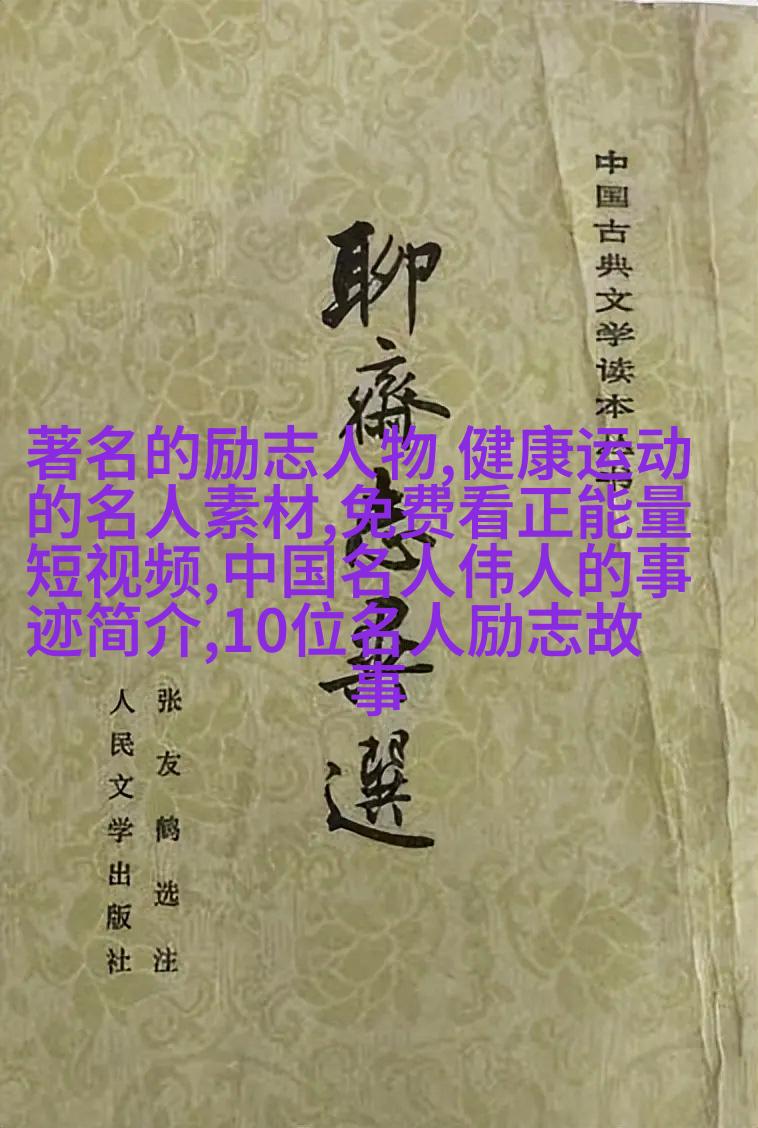 中国古典文学读本丛书
聊齋志異選
著名的励志人物,健康运动
的名人素材,免费看正能量
短视频,中国名人伟人的事
迹简介,10位名人励志故
事
张友鹤选注
人民文学出版社